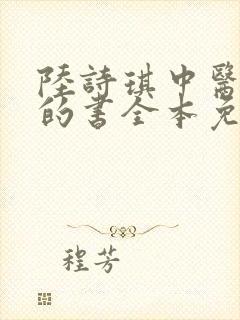 陸詩琪中醫
的書全本免
程芳